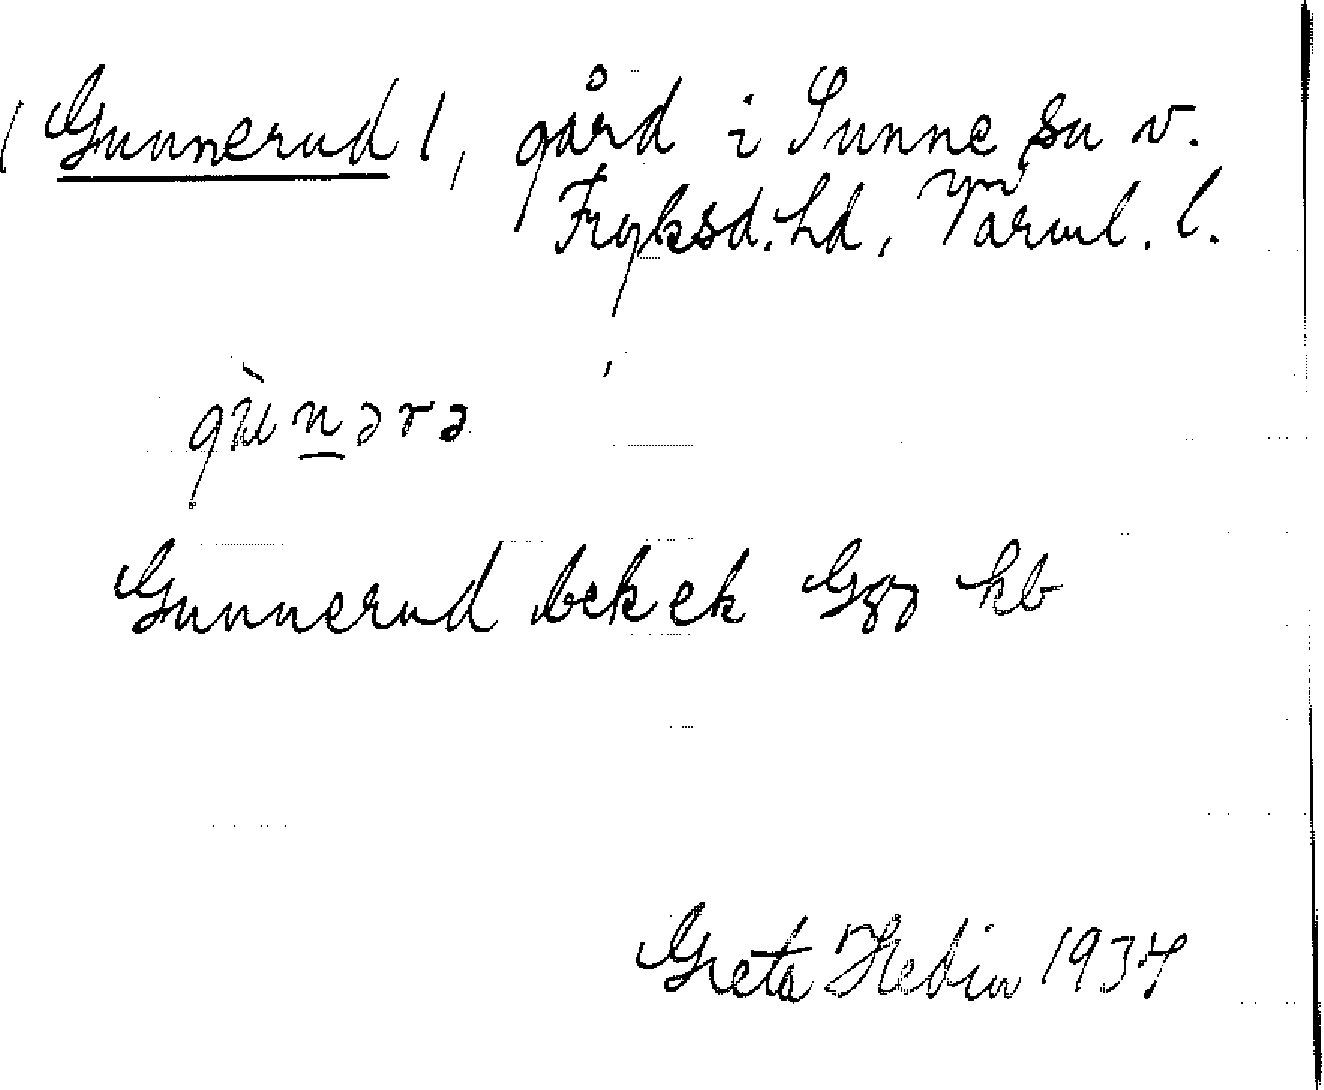 (Gunnerud), gård i Sunne sn v.
Fryksd. hd, Värml. l.
gùnərə
Gunnerud bek ek Ggg kb
Greta Hedin 1934